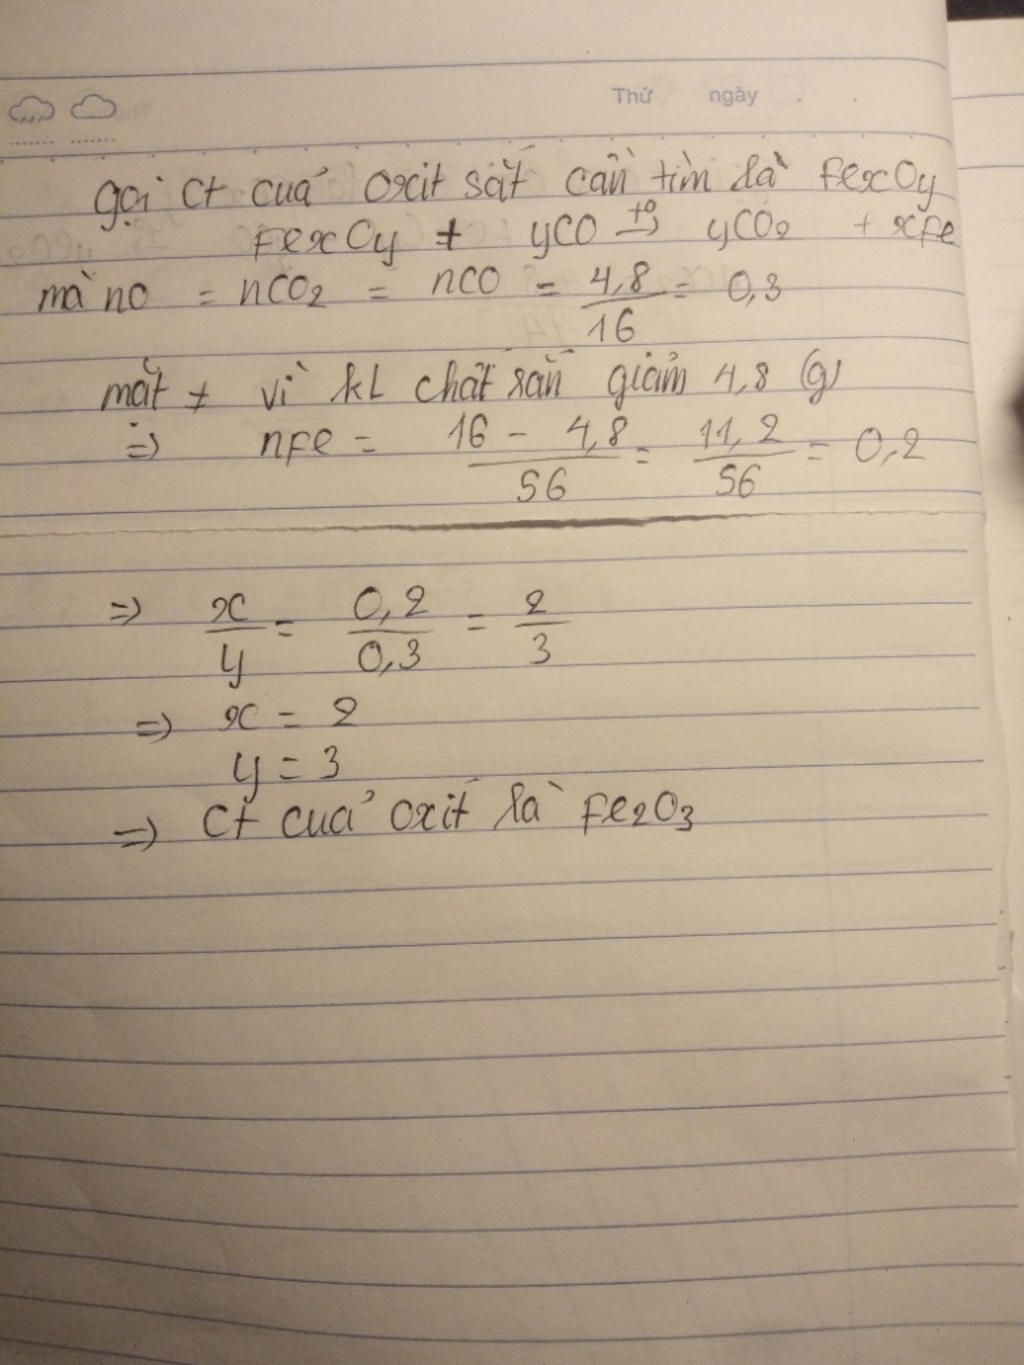 Thứ ngày . .
gọi Ct của oxit sắt cần tìm là FexOy
FexOy + yCO t° → yCO₂ + xFe
mà nO = nCO₂ = nCO = 4,8/16 = 0,3
mặt ≠ vì kL chất rắn giảm 4,8 (g)
=> nFe = 16 - 4,8/56 = 11,2/56 = 0,2
=> x/y = 0,2/0,3 = 2/3
=> x = 2
y = 3
=> Ct của oxit là Fe₂O₃